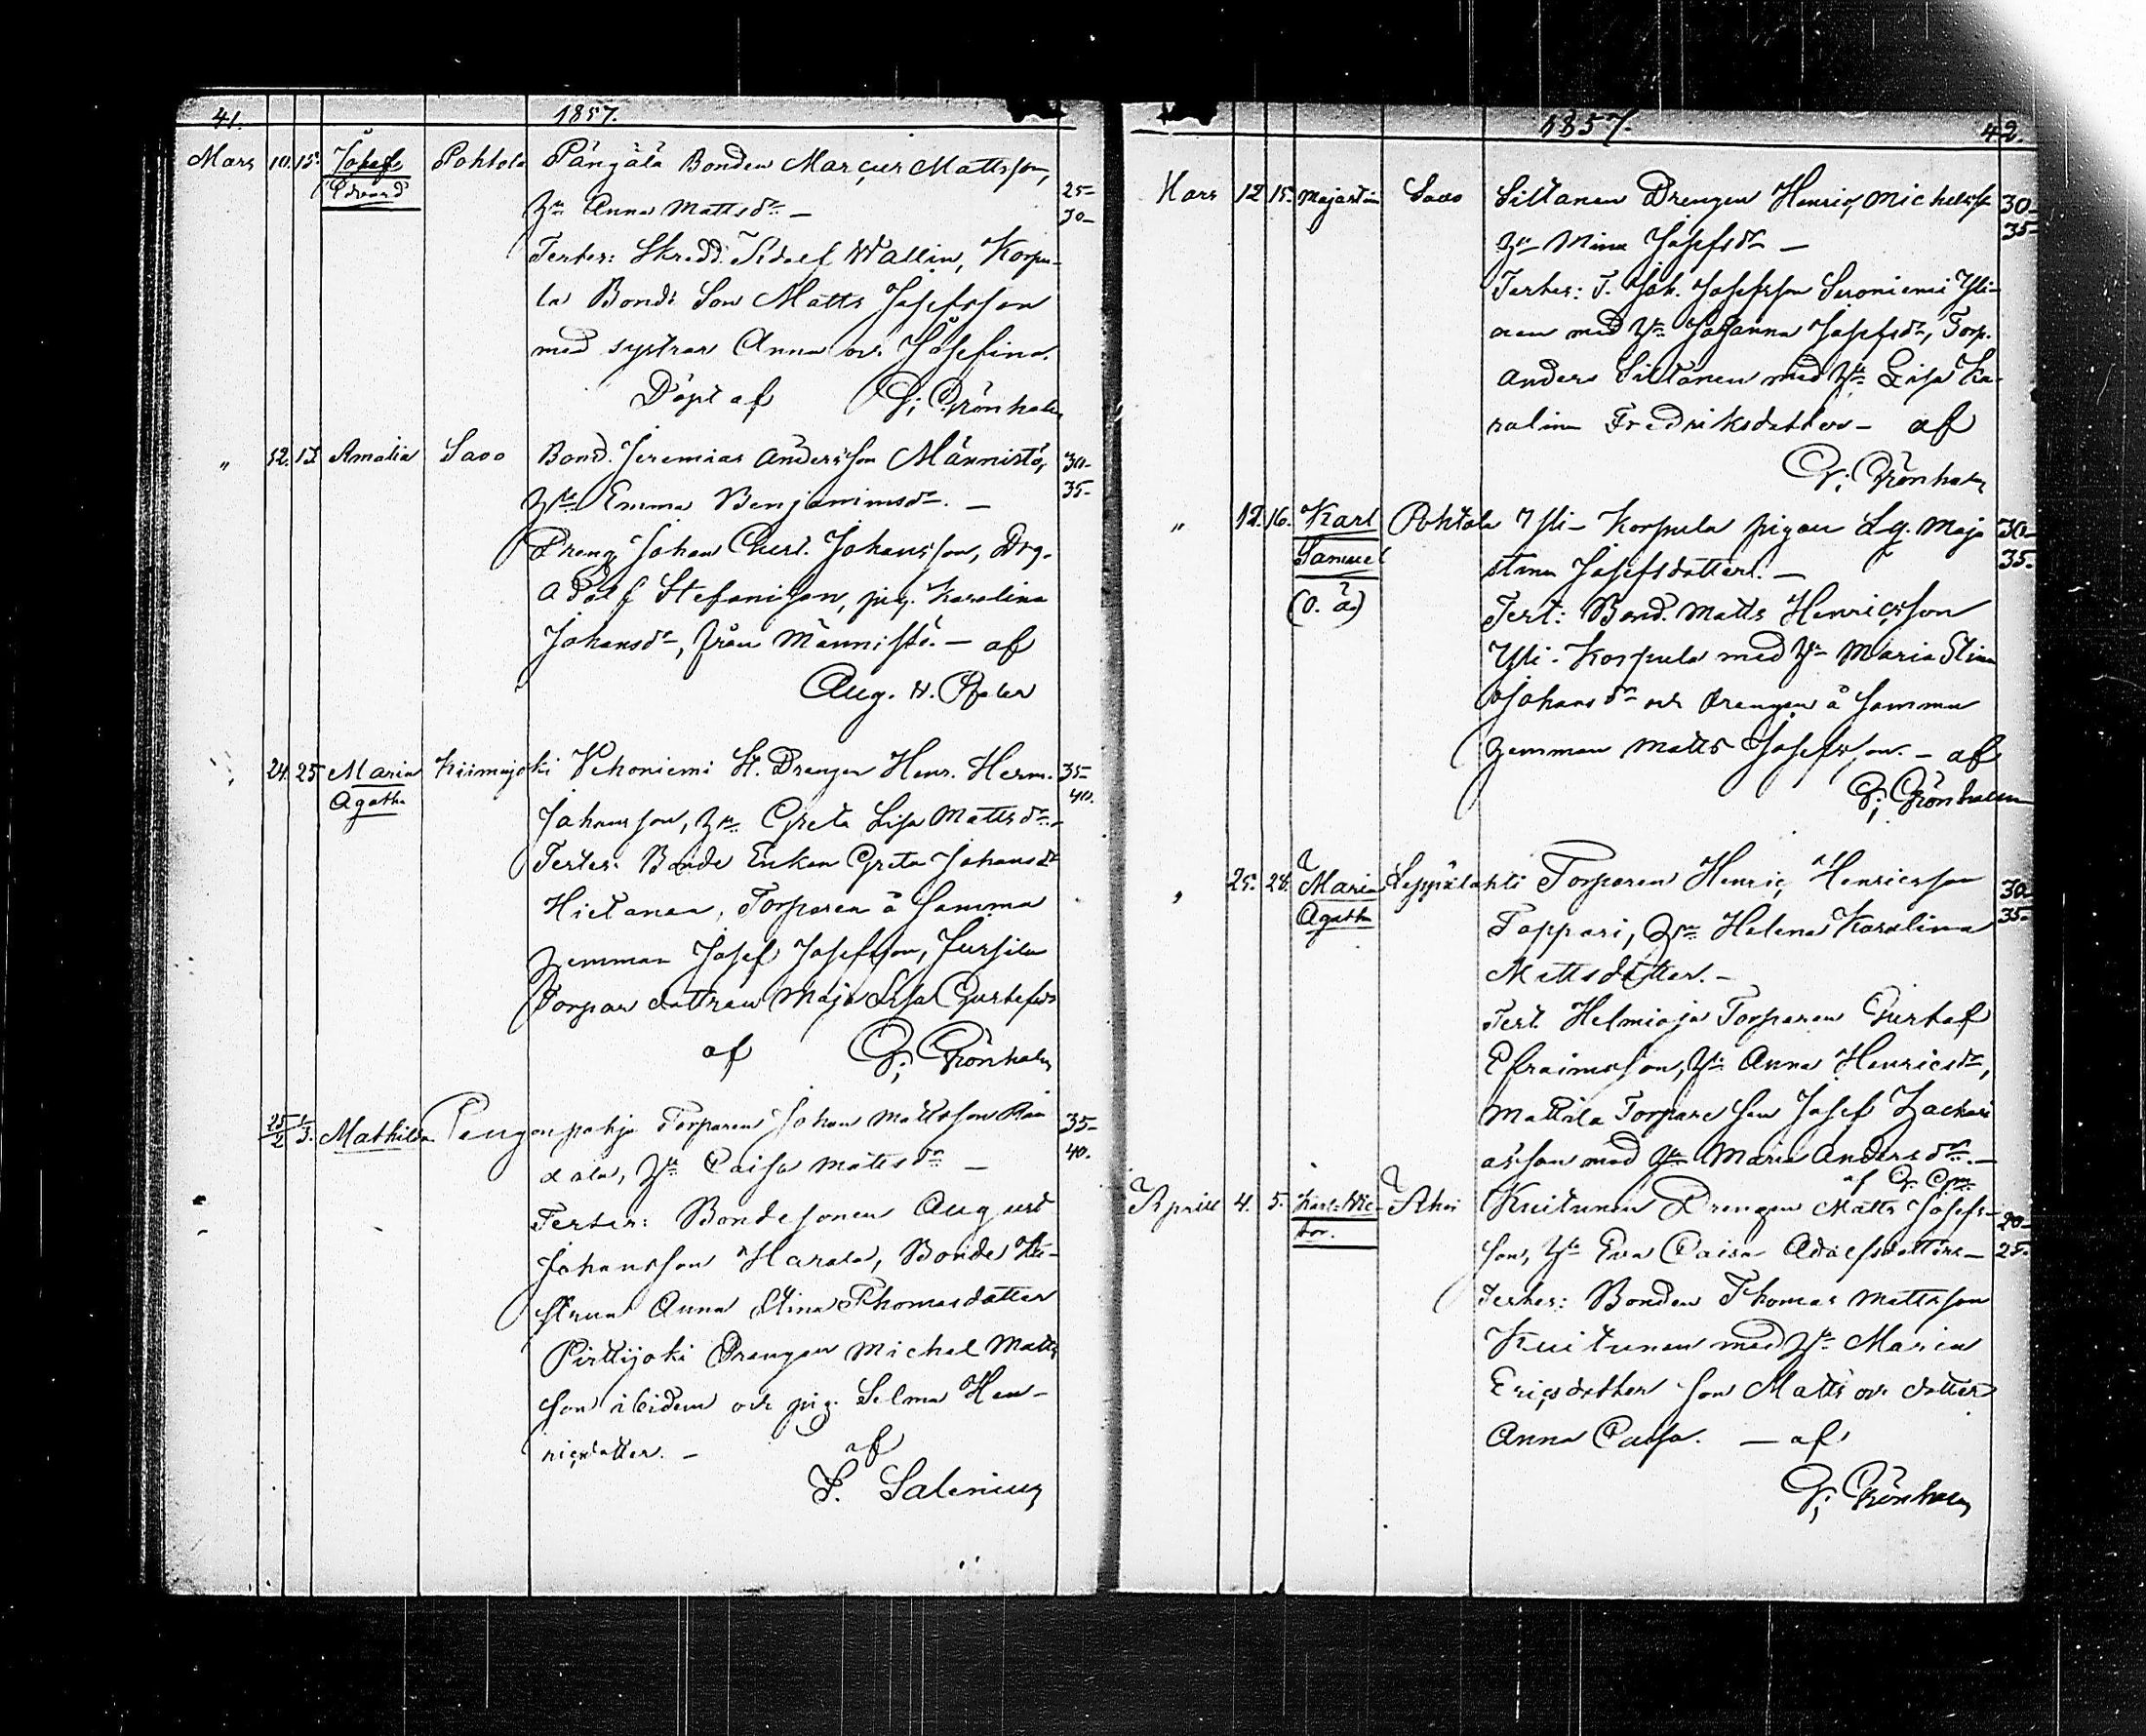 41. 1857.
Mars 10. 15. Josef Pohtola Pängälä Bonden Marcus Mattsson,
Edvard 25-
hu Anna Mattsdr - 30-
Testes: Skredd. Wallin, Korpu-
la Bonde Son Matts Josefsson
med systrar Anna och Josefina.
Döpt af G; Grönholm
" 12. 13. Amalia Savo Bond. Jeremias Andersson Männistö, 30-
hu Emma Benjaminsdr. - 35-
Dreng Johan Johansson, Drg.
Adolf Stefansson, pig. Karolina
Johansdr, från Männistö. - af
Aug. H.
" 24. 25. Maria Kiimajoki Vehoniemi St. Drengen Henr. Herm. 35-
Agatha 40.
Johansson, hu Greta Lisa Mattsdr. -
Testes: Bonde Enkan Greta Johansdr
Hietanen, Torparen å samma
hemman Josef Josefsson, Jussila
Torpare dottren Maja Lisa Gustafsdr
af G; Grönholm
25/2 1/3. Mathilda Pengonpohja Torparen Johan Mattsson 35-
hu Caisa Mattsdr - 40.
Testes: Bondesonen August
Johansson Harala, Bonde Hu-
strun Anna Stina Thomasdotter
Pirttijoki Drengen Michel Matts
son ibidem och pig. Selma Hen-
ricsdotter. - af
S. Salenius
1857. 42.
Mars 12 15. Majastina Savo Siltanen Drengen Henric Michelss 30-
hu Mina Josefsdr - 35-
Testes: T. Joh. Josefsson Yli-
nen med hu Johanna Josefsdr, Torp.
Anders Siltanen med hu Lisa Ka-
rolina Fredriksdotter - af
G; Grönholm
" 12. 16. Karl Pohtola Yli-Korpula pigan Lg. Maja 30-
Samuel stina Josefsdotter. - 35-
(o. ä.) Test: Bond. Matts Henricsson
Yli-Korpula med hu Maria Stina
Johansdr och drengen å samma
hemman Matts Josefsson. - af
G; Grönholm
" 25. 28. Maria Leppälahti Torparen Henric Henricsson 30-
Agatha Toppari, hu Helena Karolina 35-
Mattsdotter. -
Test. Helmioja Torparen Gustaf
Efraimsson, hu Anna Henricsdr,
Mattila Torpare Son Josef Zachari
asson med hu Maria Andersdr. -
af G. Gm
April 4. 5. Karl Vic- Ahoi Kuitunen Drengen Matts Josefs- 20-
tor. son, hu Eva Caisa Adolfsdotter - 25-
Testes: Bonden Thomas Mattsson
Kuitunen med hu Maria
Ericsdotter son Matts och dotter
Anna Caisa. - af
G; Grönholm